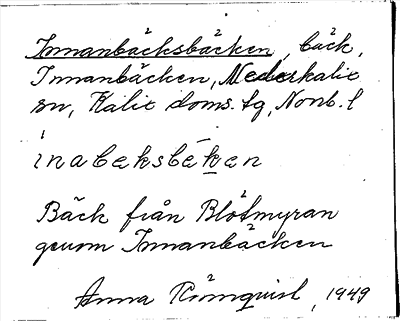 Innanbäcksbäcken, bäck,
Innanbäcken, Nederkalix
sn, Kalix doms. tg, Norrb. l
inabeksbeken
Bäck från Blötmyran
genom Innanbäcken
Anna Rönnqvist, 1949